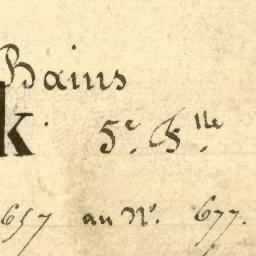 Bains
k. 5e. Chlle.
657 au No. 677.